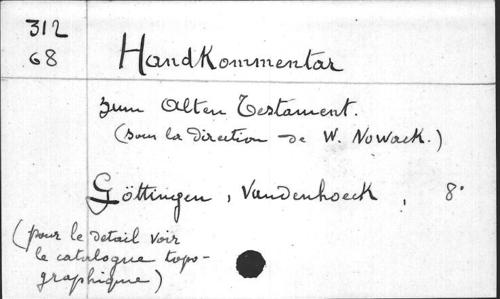 312
68
Handkommentar
zum Alten Testament.
(sous la direction de W. Nowack.)
Göttingen, Vandenhoeck, 8°
(pour le detail voir
le catalogue topo-
graphique)